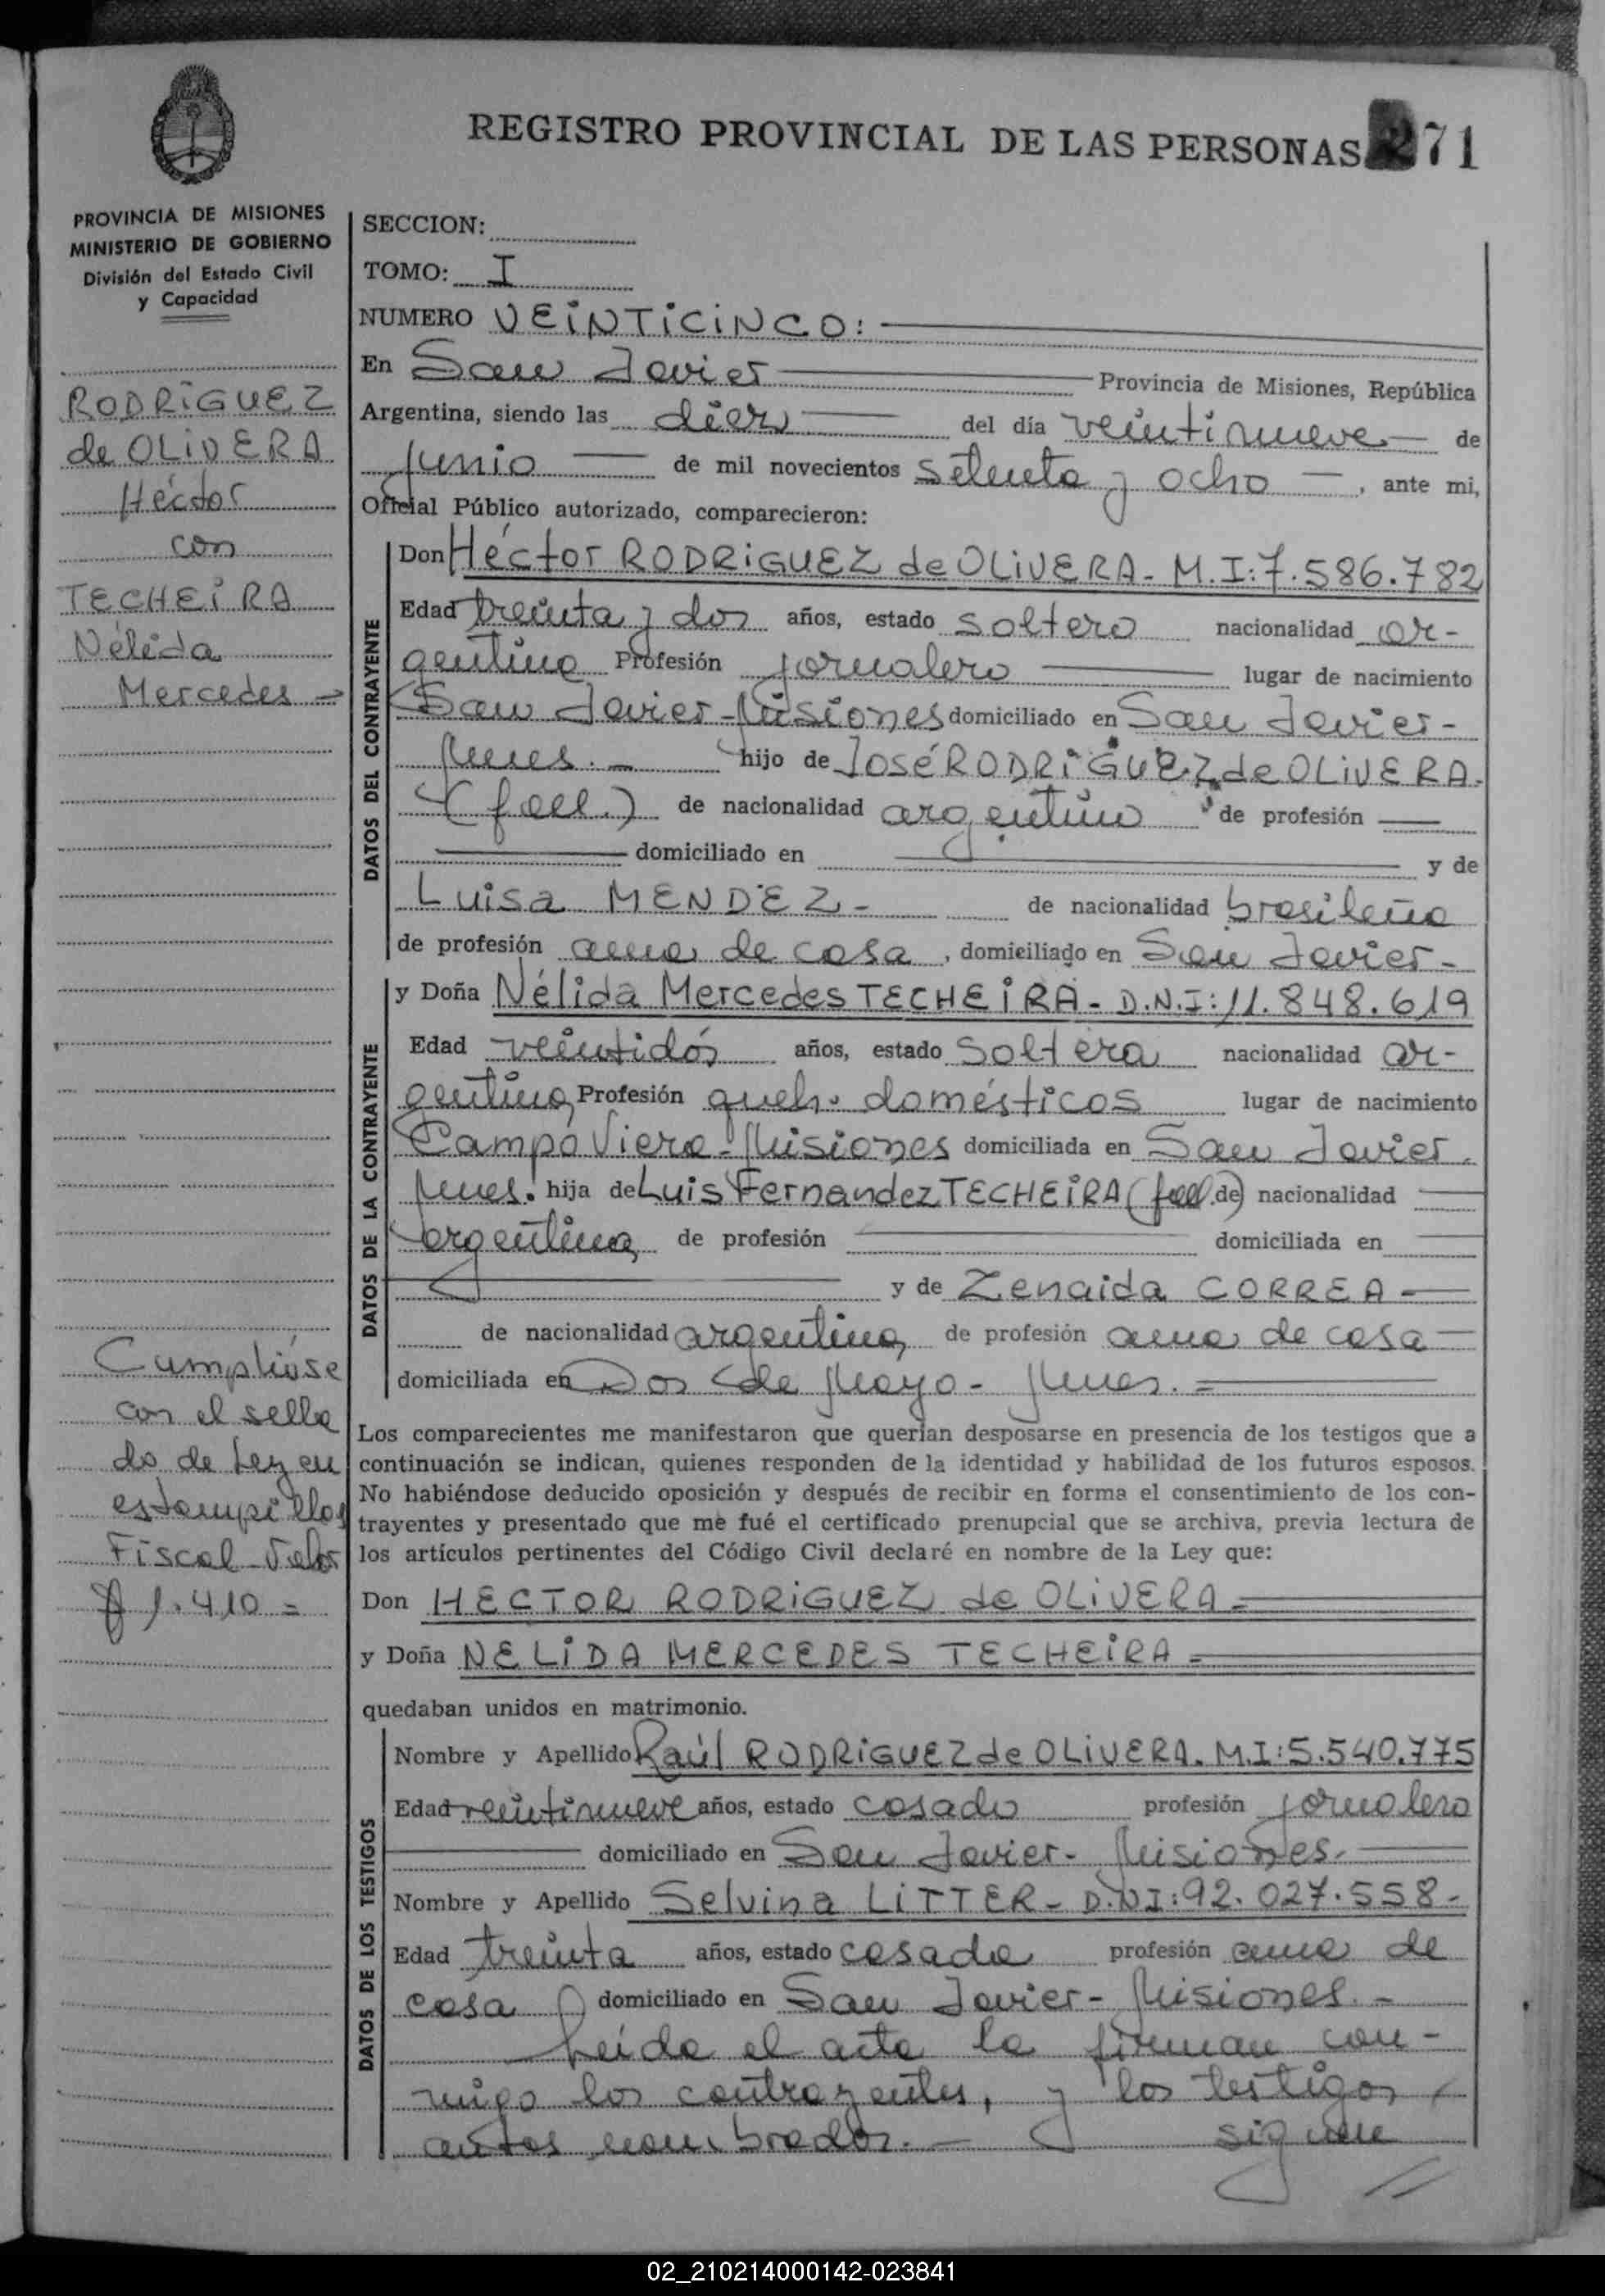 REGISTRO PROVINCIAL DE LAS PERSONAS 271
PROVINCIA DE MISIONES
MINISTERIO DE GOBIERNO
División del Estado Civil
y Capacidad
RODRIGUEZ
de OLIVERA
Héctor
con
TECHEIRA
Nélida
Mercedes -
Cumplióse
con el sella
do de Ley en
estampillas
Fiscal Valor
$ 1.410 =
SECCION:
TOMO: I
NUMERO VEINTICINCO:
En San Javier Provincia de Misiones, República
Argentina, siendo las diez del día veintinueve de
junio de mil novecientos setenta y ocho, ante mi,
Oficial Público autorizado, comparecieron:
DATOS DEL CONTRAYENTE
Don Héctor RODRIGUEZ de OLIVERA - M.I: 7.586.782
Edad treinta y dos años, estado soltero nacionalidad ar-
gentina Profesión jornalero lugar de nacimiento
San Javier - Misiones domiciliado en San Javier -
Mnes. - hijo de José RODRIGUEZ de OLIVERA -
(fall.) de nacionalidad argentino de profesión
domiciliado en y de
Luisa MENDEZ - de nacionalidad brasileña
de profesión ama de casa, domiciliado en San Javier -
DATOS DE LA CONTRAYENTE
y Doña Nélida Mercedes TECHEIRA - D.N.I: 11.848.619
Edad veintidós años, estado soltera nacionalidad ar-
gentina Profesión queh. domésticos lugar de nacimiento
Campo Viera - Misiones domiciliada en San Javier
Mnes. hija de Luis Fernandez TECHEIRA (fall.) de nacionalidad
argentina de profesión domiciliada en
y de Zenaida CORREA -
de nacionalidad argentina de profesión ama de casa
domiciliada en Dos de Mayo - Mnes. =
Los comparecientes me manifestaron que querían desposarse en presencia de los testigos que a
continuación se indican, quienes responden de la identidad y habilidad de los futuros esposos.
No habiéndose deducido oposición y después de recibir en forma el consentimiento de los con-
trayentes y presentado que me fué el certificado prenupcial que se archiva, previa lectura de
los artículos pertinentes del Código Civil declaré en nombre de la Ley que:
Don HECTOR RODRIGUEZ de OLIVERA =
y Doña NELIDA MERCEDES TECHEIRA =
quedaban unidos en matrimonio.
DATOS DE LOS TESTIGOS
Nombre y Apellido Raúl RODRIGUEZ de OLIVERA. M.I: 5.540.775
Edad veintinueve años, estado casado profesión jornalero
domiciliado en San Javier - Misiones.
Nombre y Apellido Selvina LITTER - D.N.I: 92.027.558 -
Edad treinta años, estado casada profesión ama de
casa domiciliado en San Javier - Misiones. -
Leída el acta la firman con-
migo los contrayentes, y los testigos
antes nombrados. - sigue
02_210214000142-023841